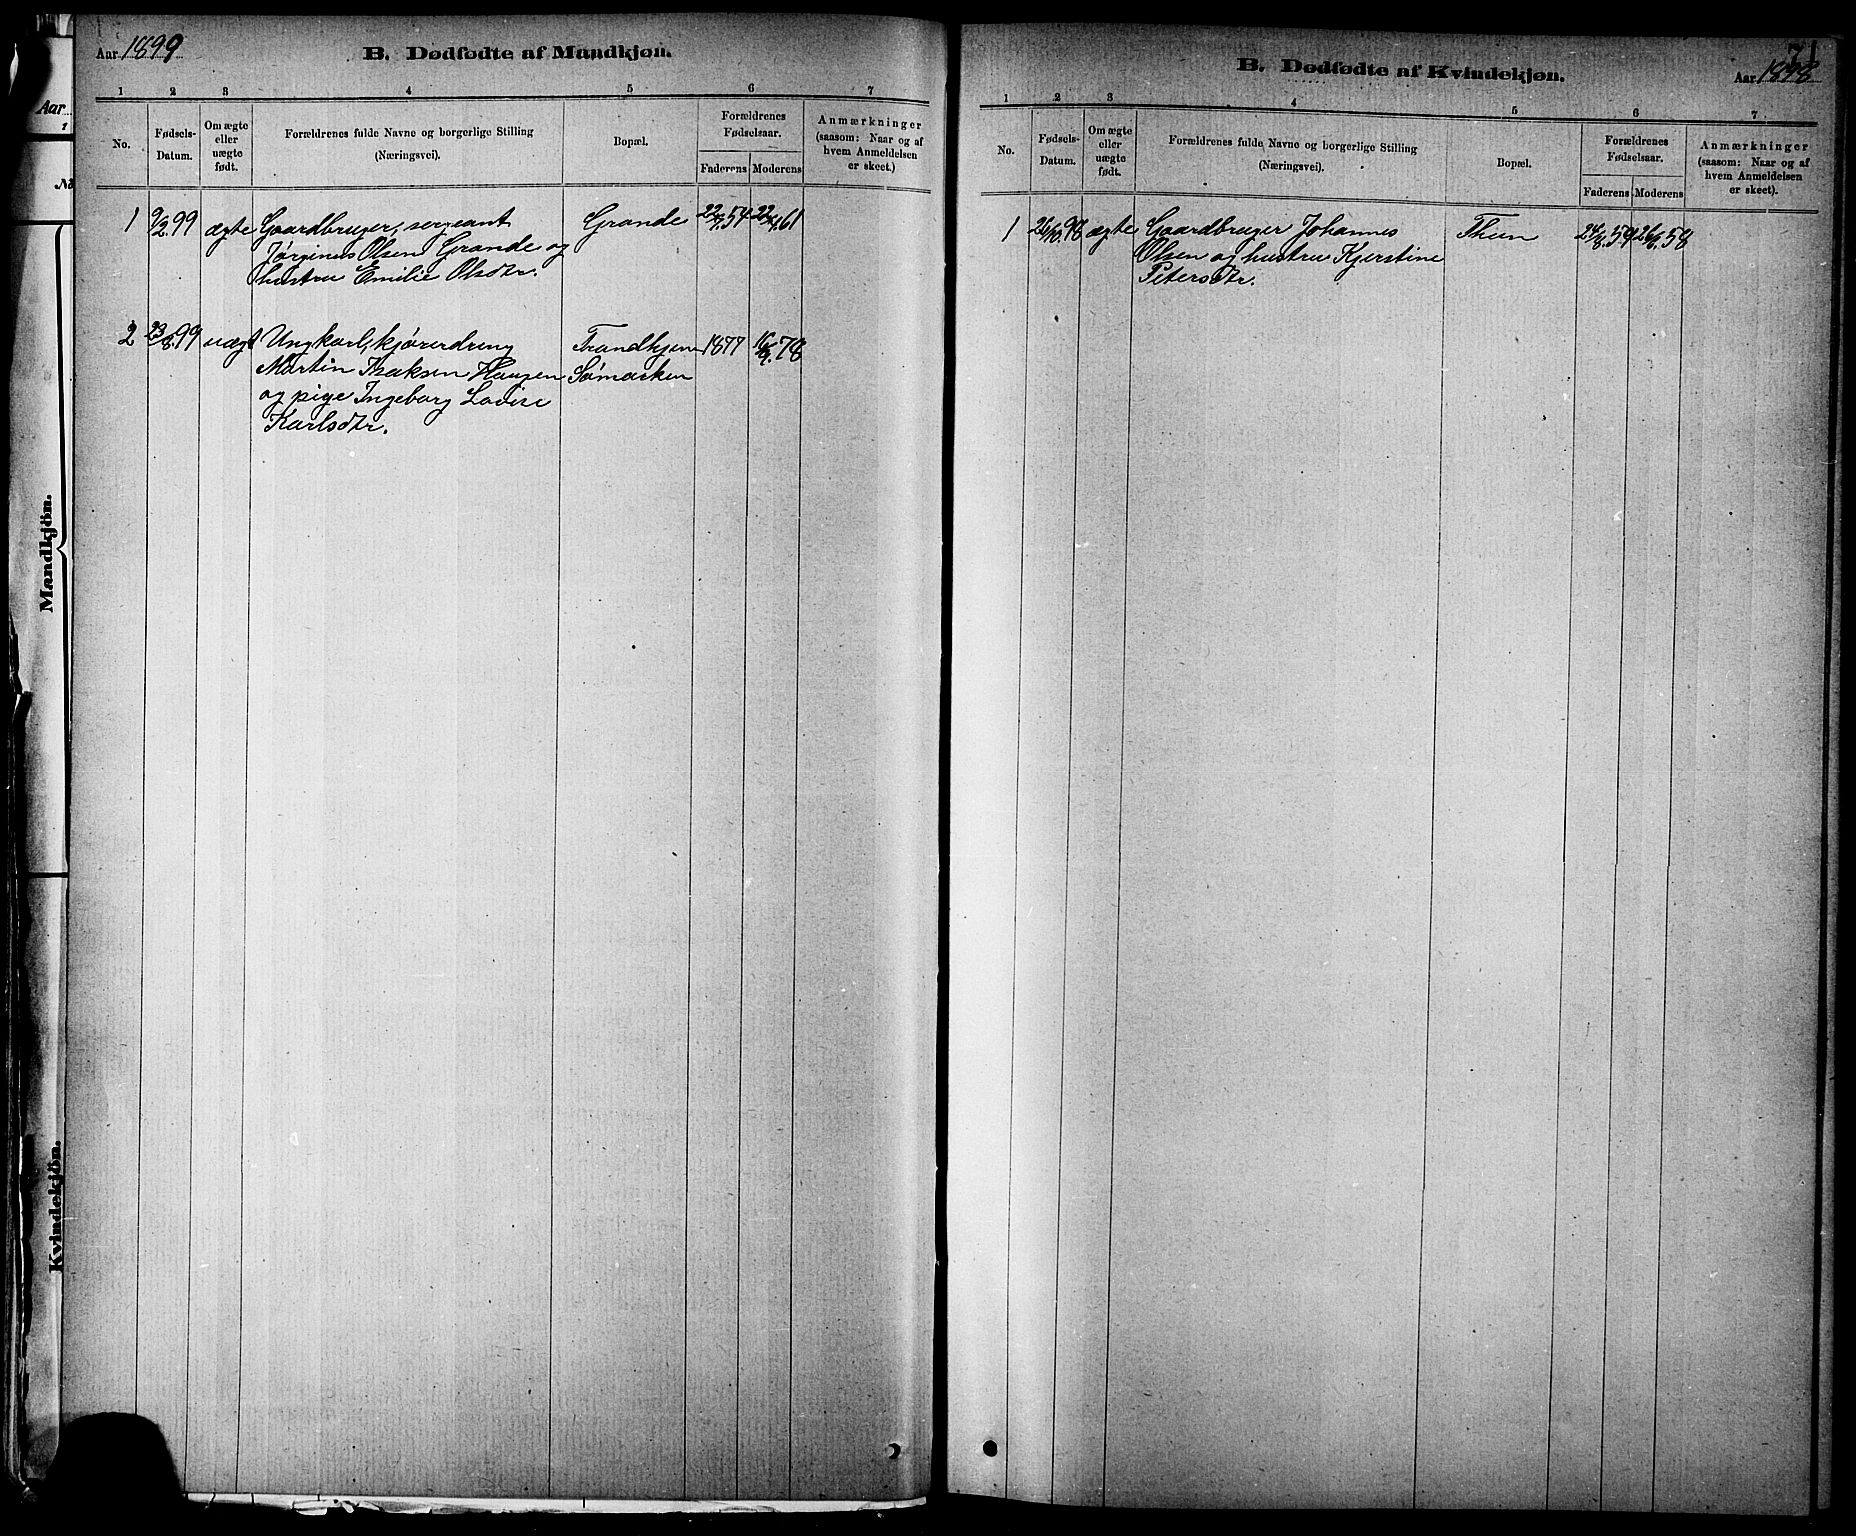 Aar 1899
B. Dødfødte af Mandkjøn.
1 2 3 4 5 6 7
No.
Fødsels-
Datum.
Om ægte
eller
uægte
født.
Forældrenes fulde Navne og borgerlige Stilling
(Næringsvei).
Bopæl.
Forældrenes
Fødselsaar.
Faderens Moderens
Anmærkninger
(saasom: Naar og af
hvem Anmeldelsen
er skeet.)
1 9/2 99 ægte Gaardbruger, sergeant Grande 54 61
Jørginus Olsen Grande og
hustru Emilie Olsdtr.
2 23/8 99 uægt Ungkarl, kjøredreng Trondhjem 1877 78
Martin Isaksen Haugen Sømarken
og pige Ingeborg Lovise
Karlsdtr.
Aar
1
Mandkjön.
Kvindekjön.
71
B. Dødfødte af Kvindekjøn.
Aar 1898
1 2 3 4 5 6 7
No.
Fødsels-
Datum.
Om ægte
eller
uægte
født.
Forældrenes fulde Navne og borgerlige Stilling
(Næringsvei).
Bopæl.
Forældrenes
Fødselsaar.
Faderens Moderens
Anmærkninger
(saasom: Naar og af
hvem Anmeldelsen
er skeet).
1 26/10 98 ægte Gaardbruger Johannes Thun 59 58
Olsen og hustru Kjerstine
Petersdtr.